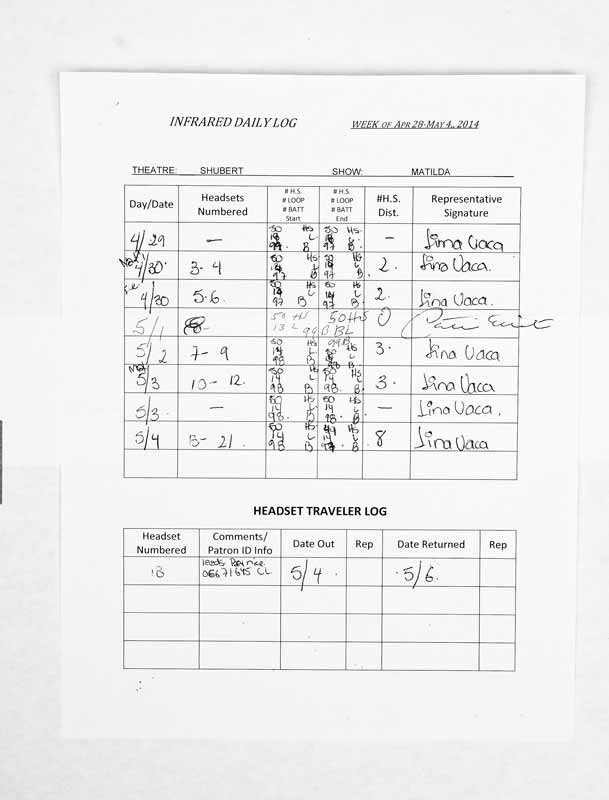 INFRARED DAILY LOG WEEK OF APR 28-MAY 4., 2014
THEATRE: SHUBERT SHOW: MATILDA
Day/Date Headsets Numbered # H.S. # LOOP # BATT Start # H.S. # LOOP # BATT End #H.S. Dist. Representative Signature
4/29 — 50 HS L 97. B 50 HS. L. B — Lina Vaca
Mat 4/30. 3-4 50 HS 14 L 97 B 50 HS L 97 B. 2. Lina Vaca.
Eve 4/30 5-6. 50 HS L 97 B 50 HS 14 L 97 B 2. Lina Vaca.
5/1 50 HS 13 L 99 B 50 HS BL 99B 0
5/2 7-9 50 HS 14 L 98 B 50 HS 14 L 98 B 3. Lina Vaca
Mat 5/3 10-12. 50 HS 14 L 98 B 50 HS 14 L 98 B 3. Lina Vaca
5/3. — 50 HS 14 L 98. B 50 HS 14 L 98. B — Lina Vaca.
5/4 13-21. 50 HS 14 L 98 B 49 HS 14 L. B 8 Lina Vaca
HEADSET TRAVELER LOG
Headset Numbered Comments/ Patron ID Info Date Out Rep Date Returned Rep
18 06671645 CL 5/4. 5/6.